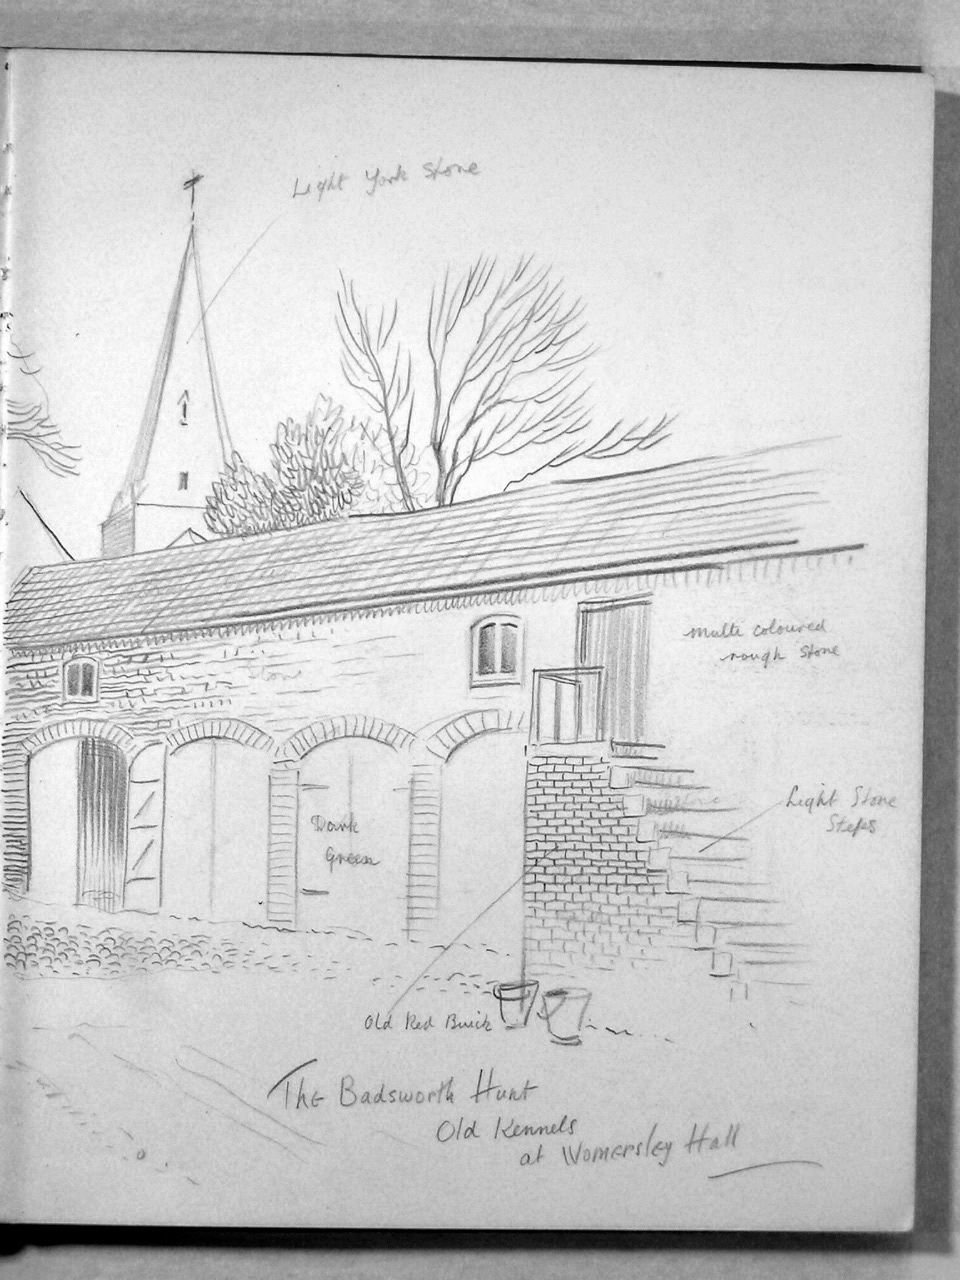 Light York Stone
Stone
Multi coloured
rough Stone
Light Stone
Steps
Dark
Green
Old Red Brick
The Badsworth Hunt
Old Kennels
at Womersley Hall